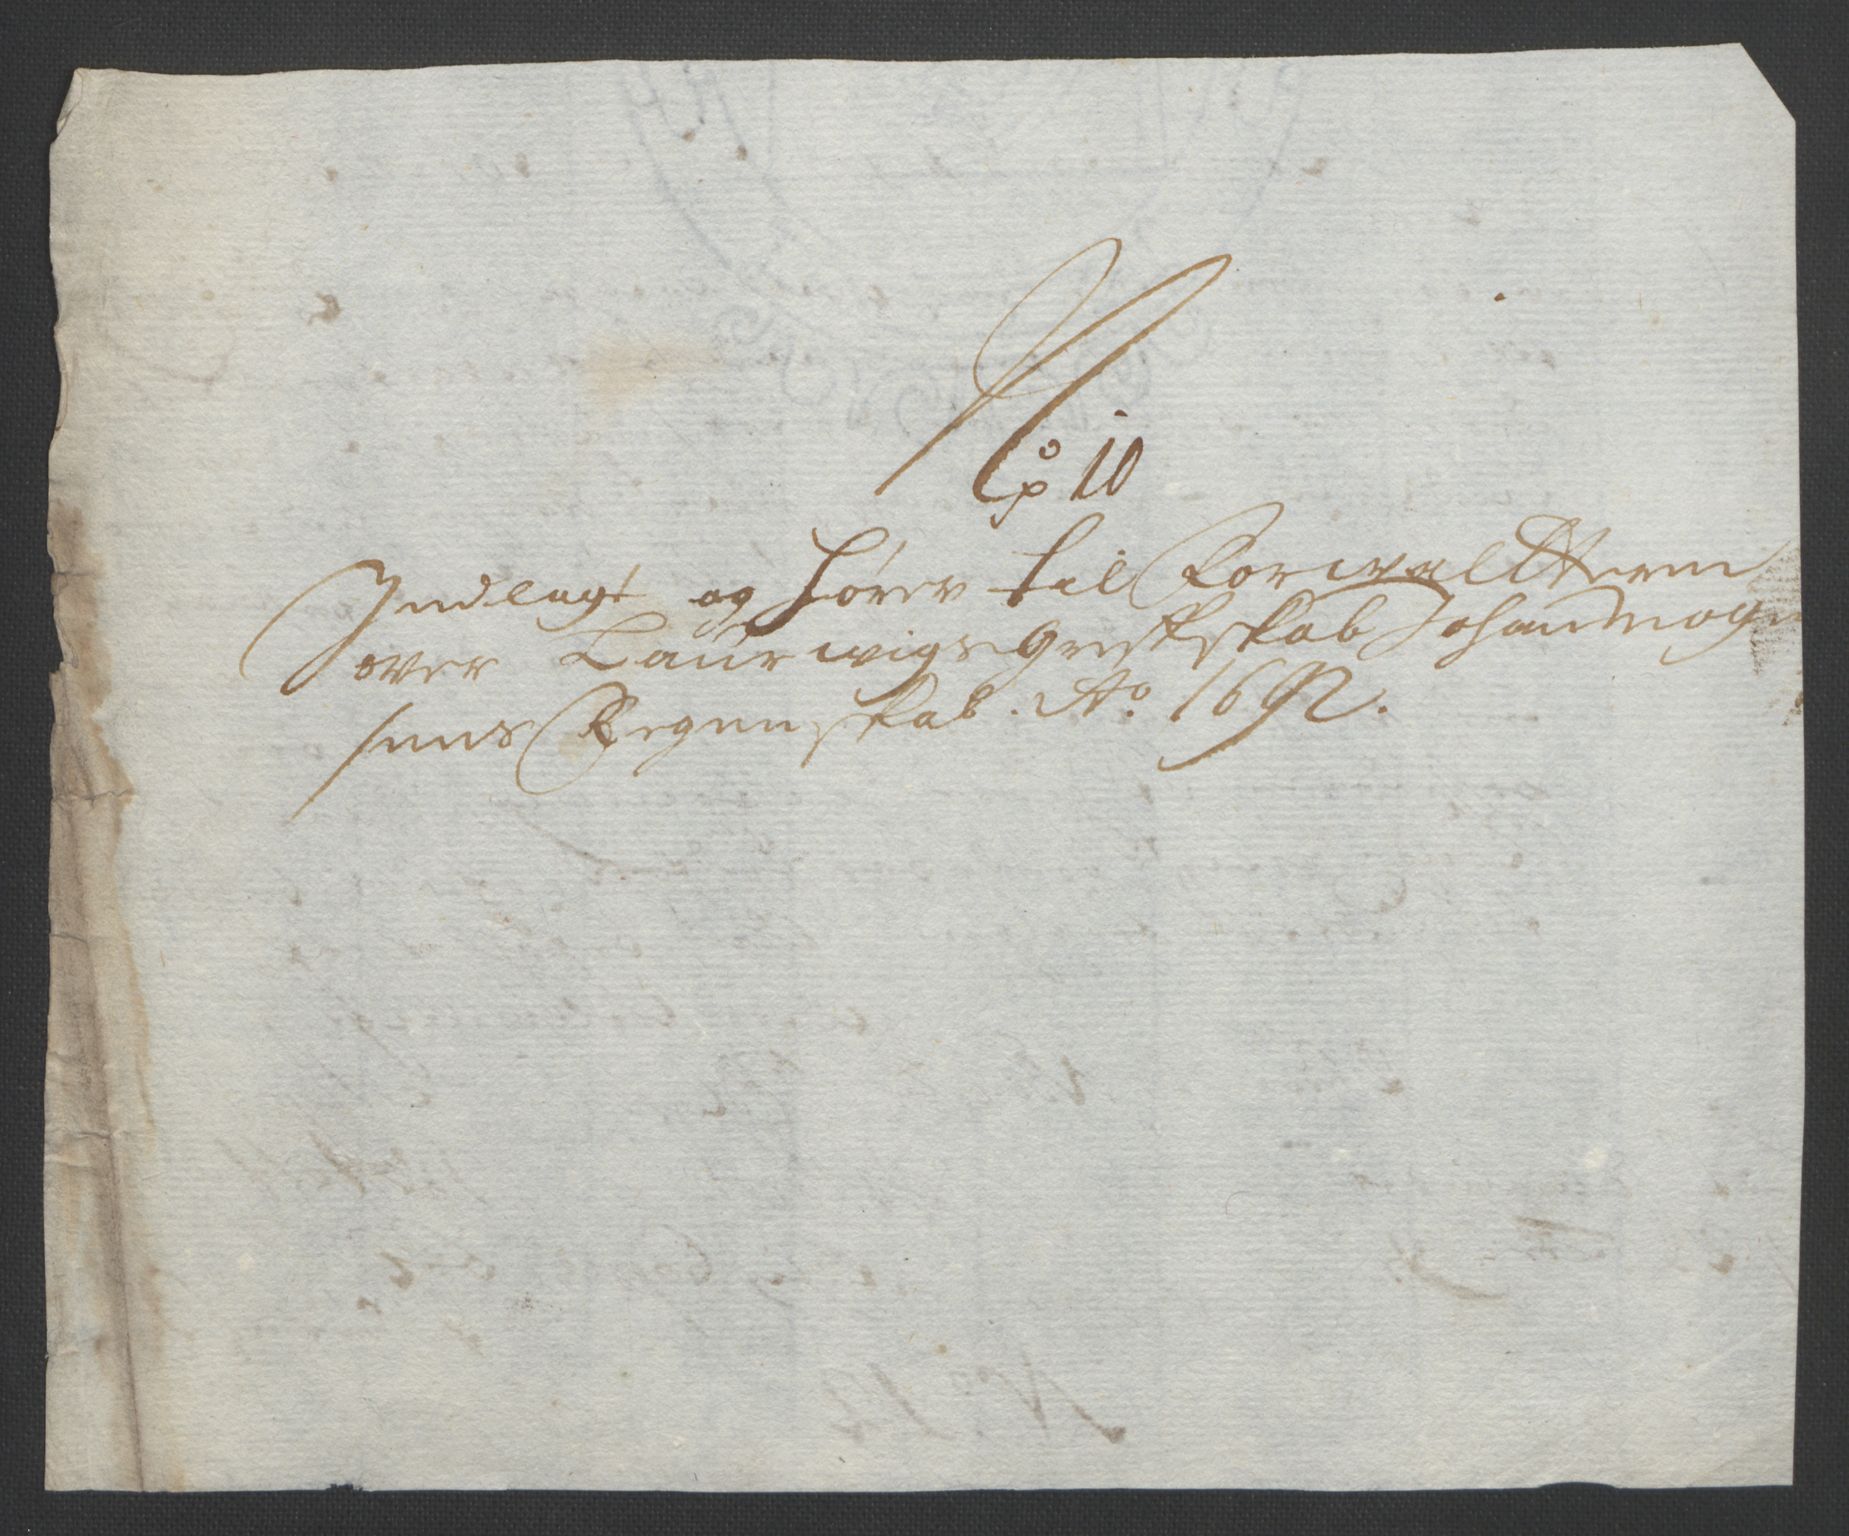 No 10
Indlagt og hører til Forwaltteren
over Laurwigs Grefskab Johan Mog
sens Regenskab. Ao. 1692.